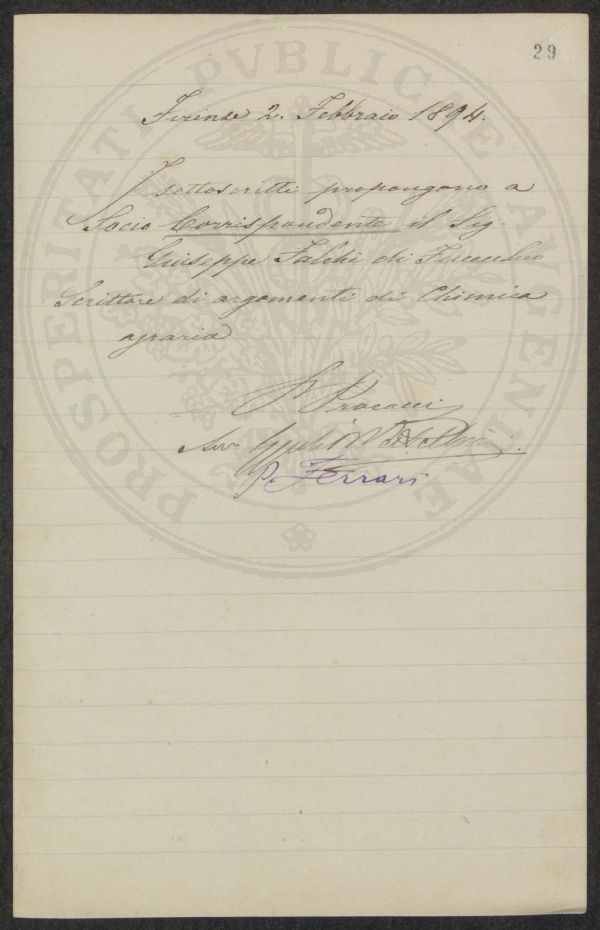 29
PROSPERITATI PVBLICAE AVGENDAE
Firenze 2. Febbraio 1894.
I sottoscritti propongono a
Socio Corrispondente il Sig.
Giuseppe Falchi di Fucecchio
Scrittore di argomenti di Chimica
agraria
Procacci
Avv
P. Ferrari